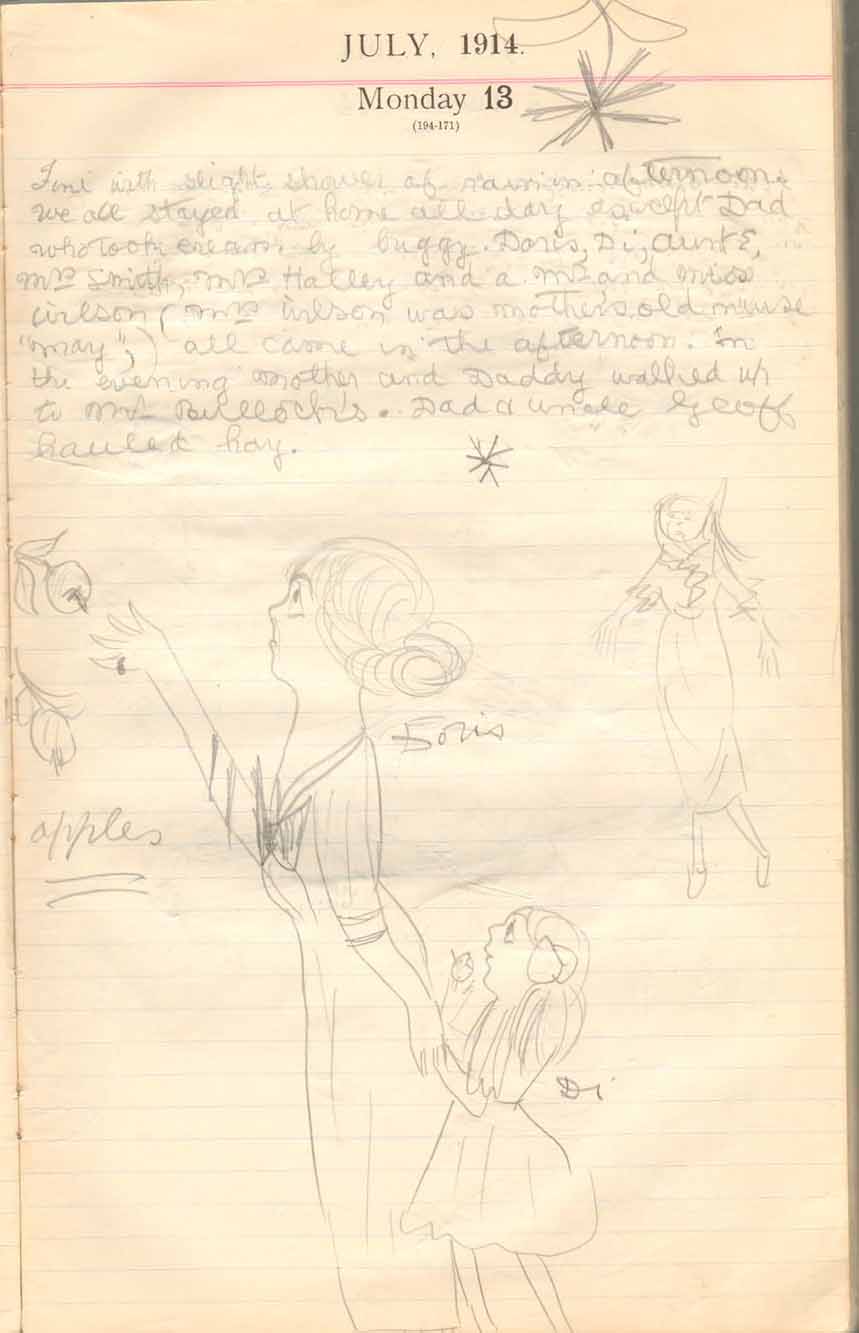 JULY, 1914.
Monday 13
(194-171)
Fine with slight shower of rain in afternoon.
We all stayed at home all day except Dad
who took cream by buggy. Doris, Di, Aunt E,
Mrs Smith, Mrs Hatley and a Mrs and Miss
Wilson (Mrs Wilson was mothers old nurse
"May",) all came in the afternoon. In
the evening Mother and Daddy walked up
to Mr Bullock's. Dad & Uncle Geoff
hauled hay.
Doris
apples
Di